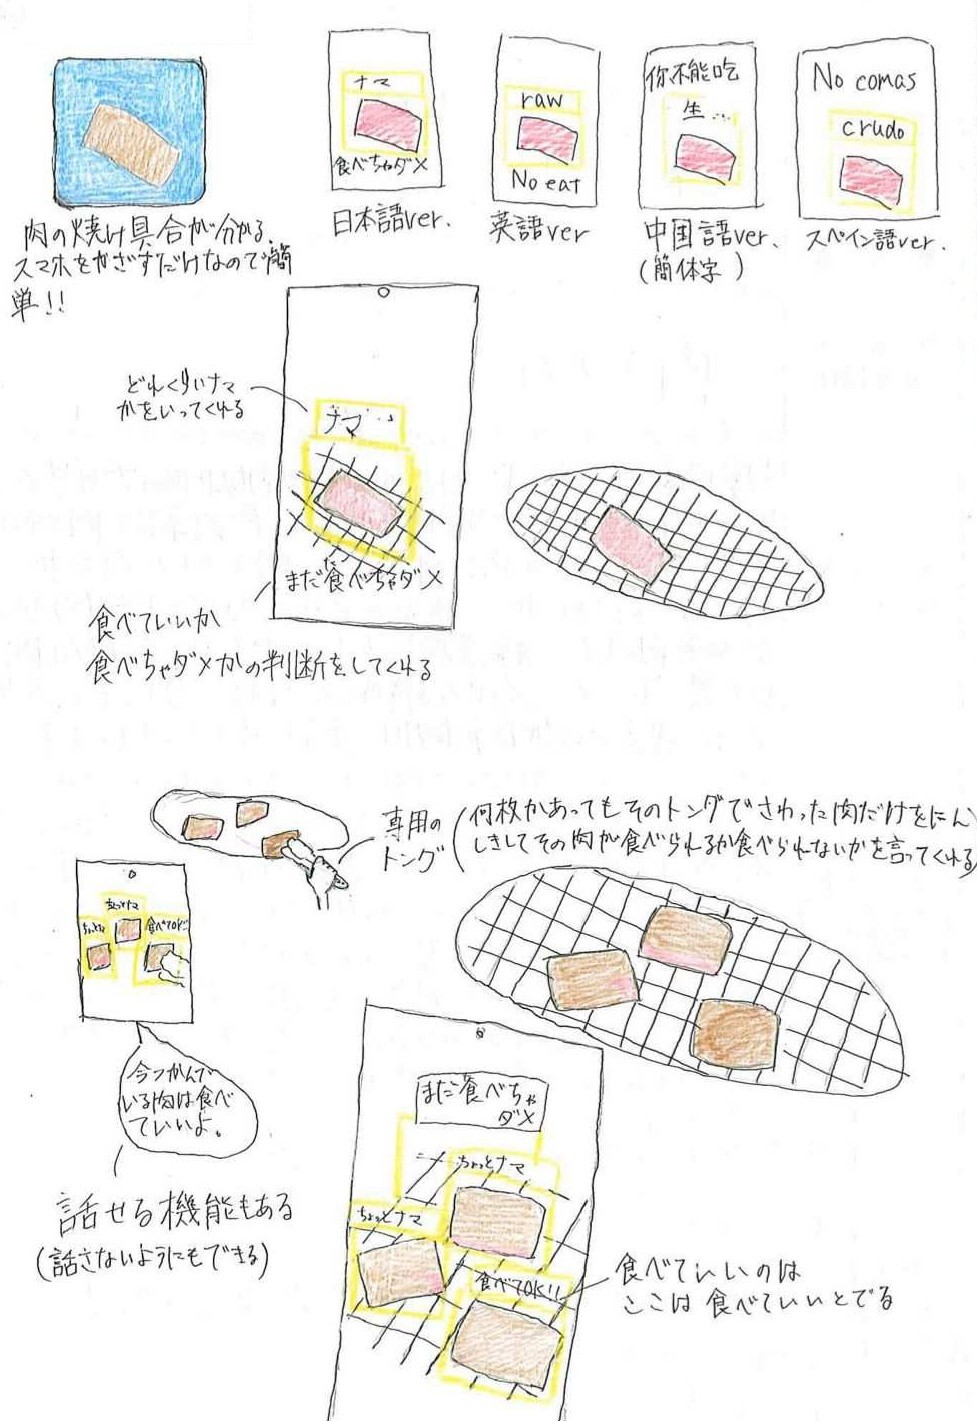 ナマ
食べちゃダメ
日本語ver.
raw
No eat
英語ver
你不能吃
生...
中国語ver.
(簡体字)
No comas
crudo
スペイン語ver.
肉の焼け具合が分かる。
スマホをかざすだけなので簡
単!!
どれくらいナマ
かをいってくれる
ナマ…
まだ食べちゃダメ
食べていいか
食べちゃダメかの判断をしてくれる
専用の
トング
(何枚かあってもそのトングでさわった肉だけをにん
しきしてその肉が食べられるか食べられないかを言ってくれる
ちょっとナマ
食べてOK!!
今つかんで
いる肉は食べ
ていいよ。
話せる機能もある
(話さないようにもできる)
まだ食べちゃ
ダメ
ちょっとナマ
ちょっとナマ
食べてOK!!
食べていいのは
ここは食べていいとでる